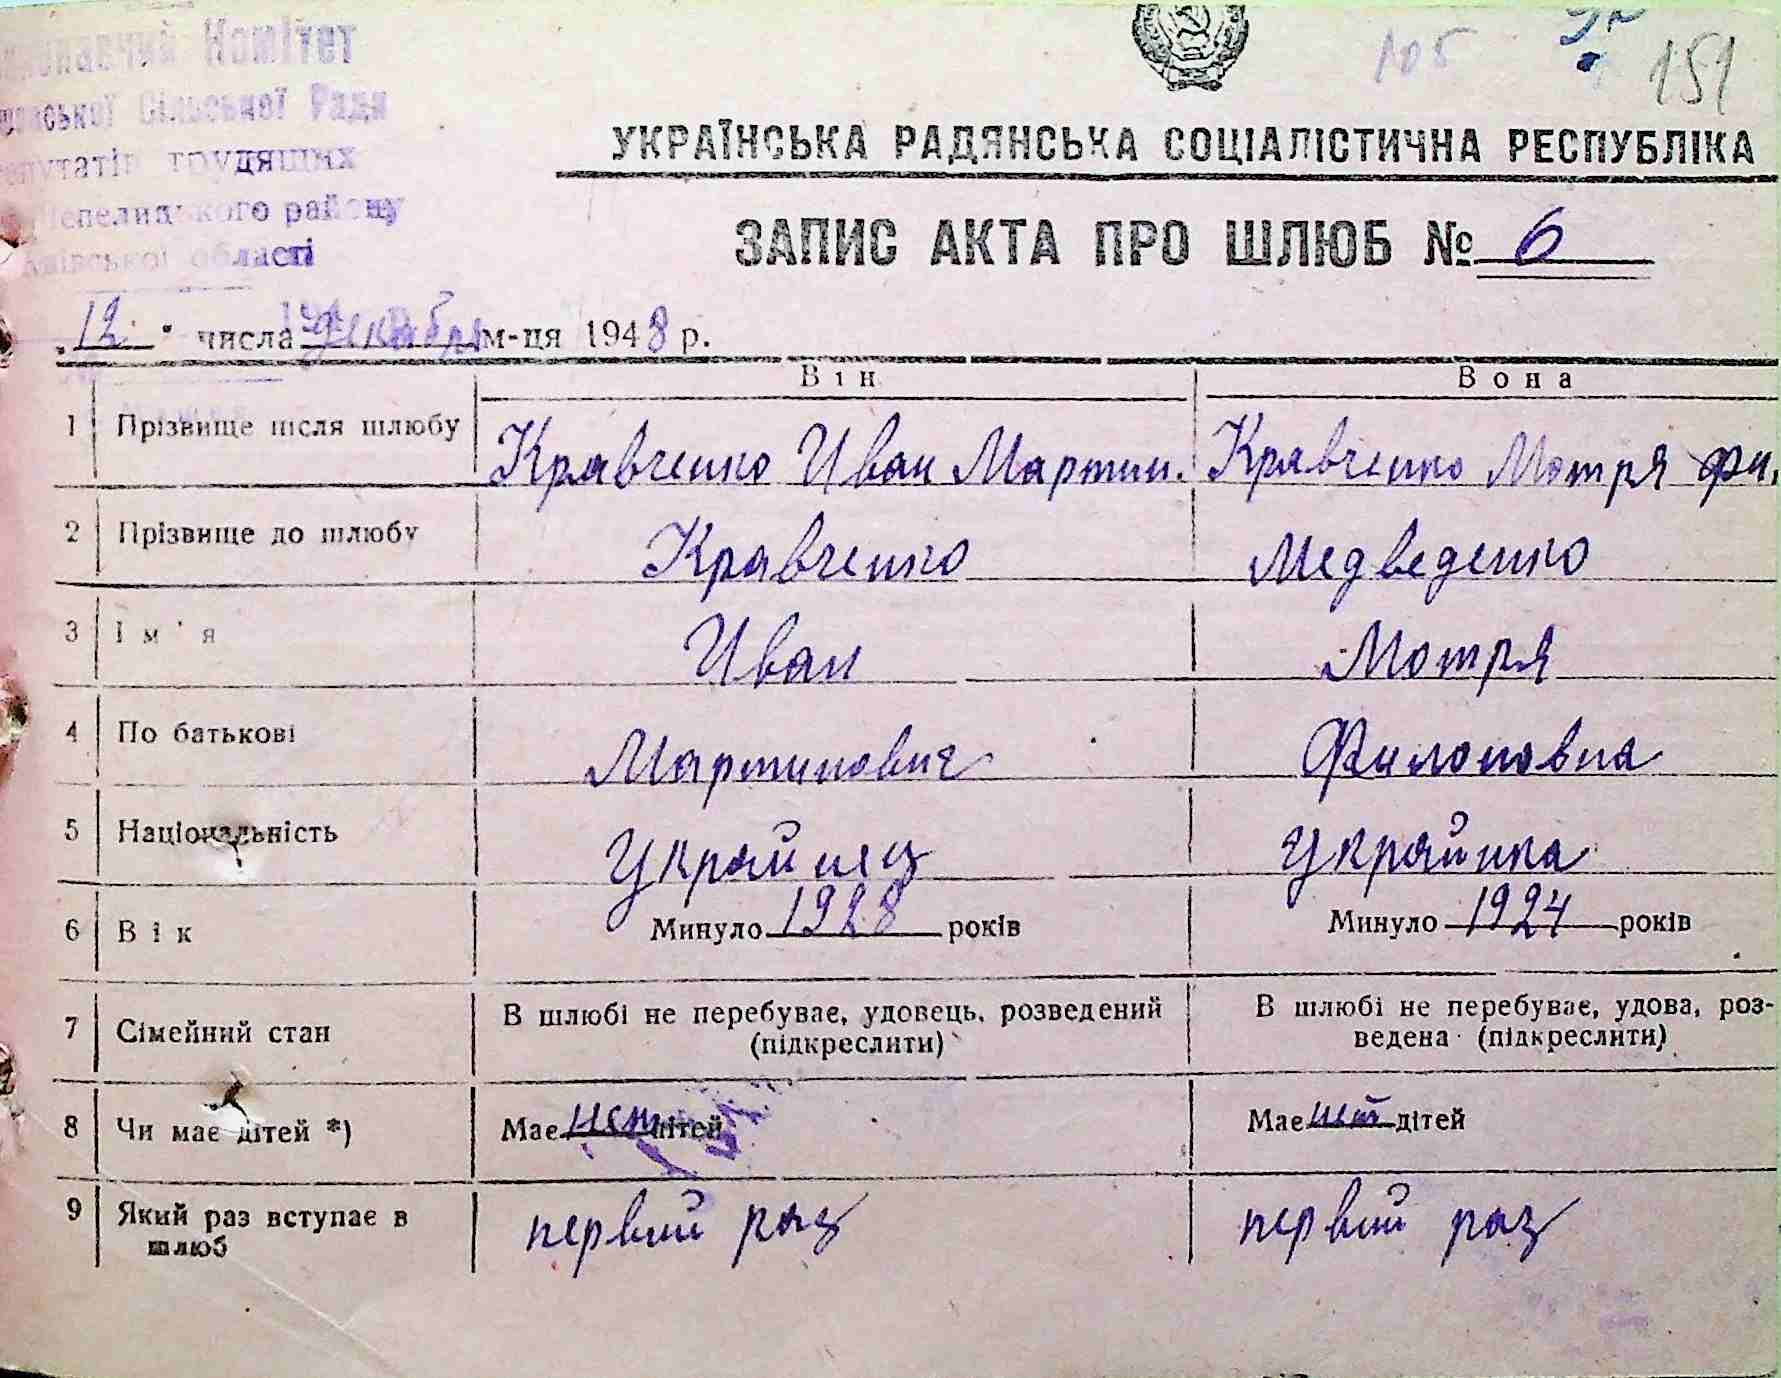 Комітет
Сільської Ради
трудящих
району
області
105 151
УКРАЇНСЬКА РАДЯНСЬКА СОЦІАЛІСТИЧНА РЕСПУБЛІКА
ЗАПИС АКТА ПРО ШЛЮБ № 6
„12" числа декабря м-ця 1948 р.
Він Вона
1 Прізвище після шлюбу Кравченко Иван Мартин. Кравченко Мотря Фи.
2 Прізвище до шлюбу Кравченко Медведенко
3 Ім'я Иван Мотря
4 По батькові Мартинович Филоповна
5 Національність Украйнец Украйнка
6 Вік Минуло 1928 років Минуло 1924 років
7 Сімейний стан В шлюбі не перебуває, удовець, розведений (підкреслити) В шлюбі не перебуває, удова, роз-
ведена (підкреслити)
8 Чи має дітей *) Має нет дітей Має нет дітей
9 Який раз вступає в шлюб первий раз первий раз